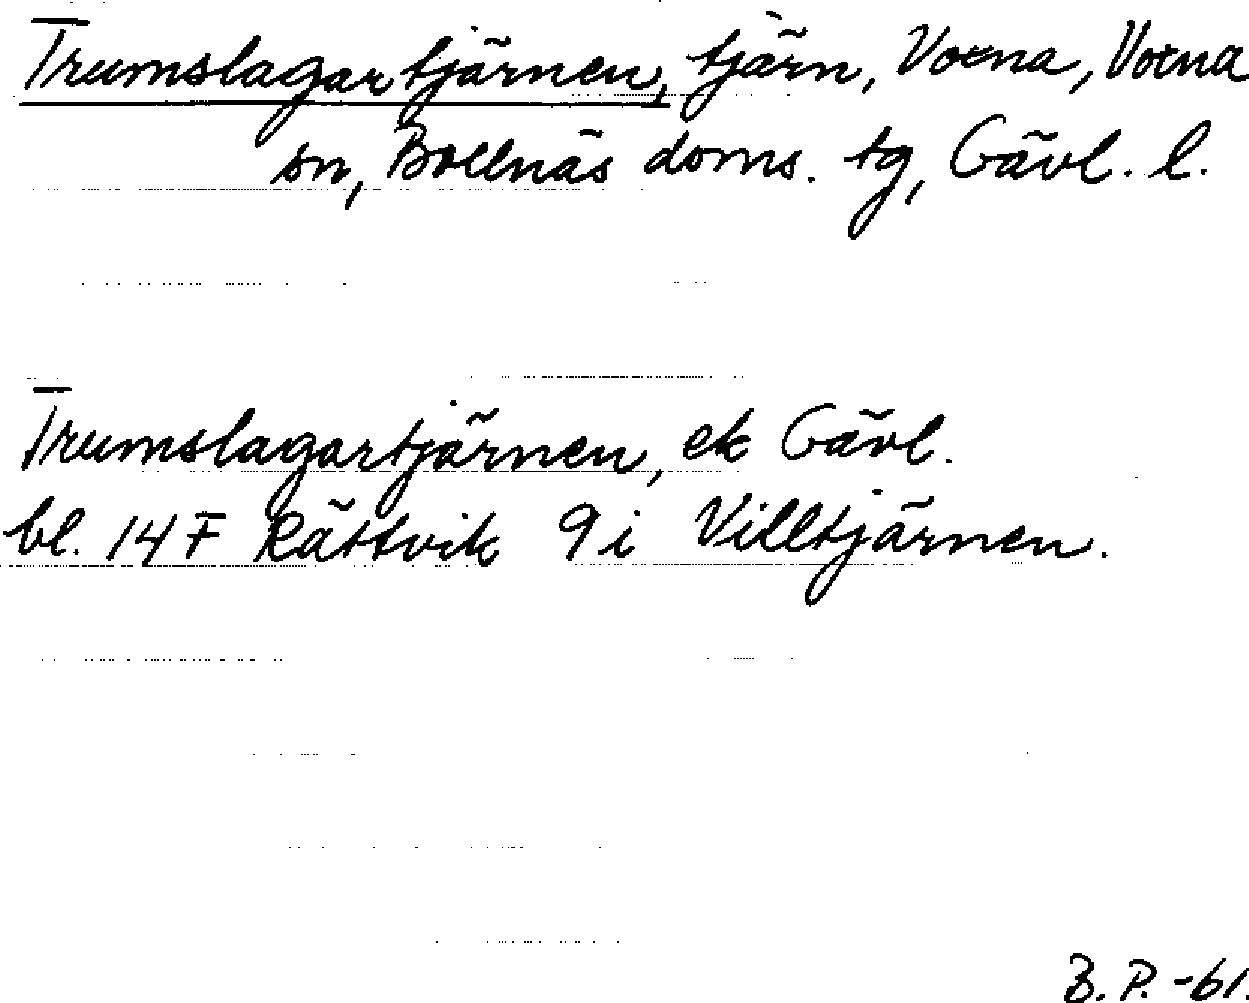 Trumslagartjärnen, tjärn, Voxna, Voxna
sn, Bollnäs doms. tg, Gävl. l.
Trumslagartjärnen, ek Gävl.
bl. 14 F Rättvik 9 i Villtjärnen.
B. P. -61.